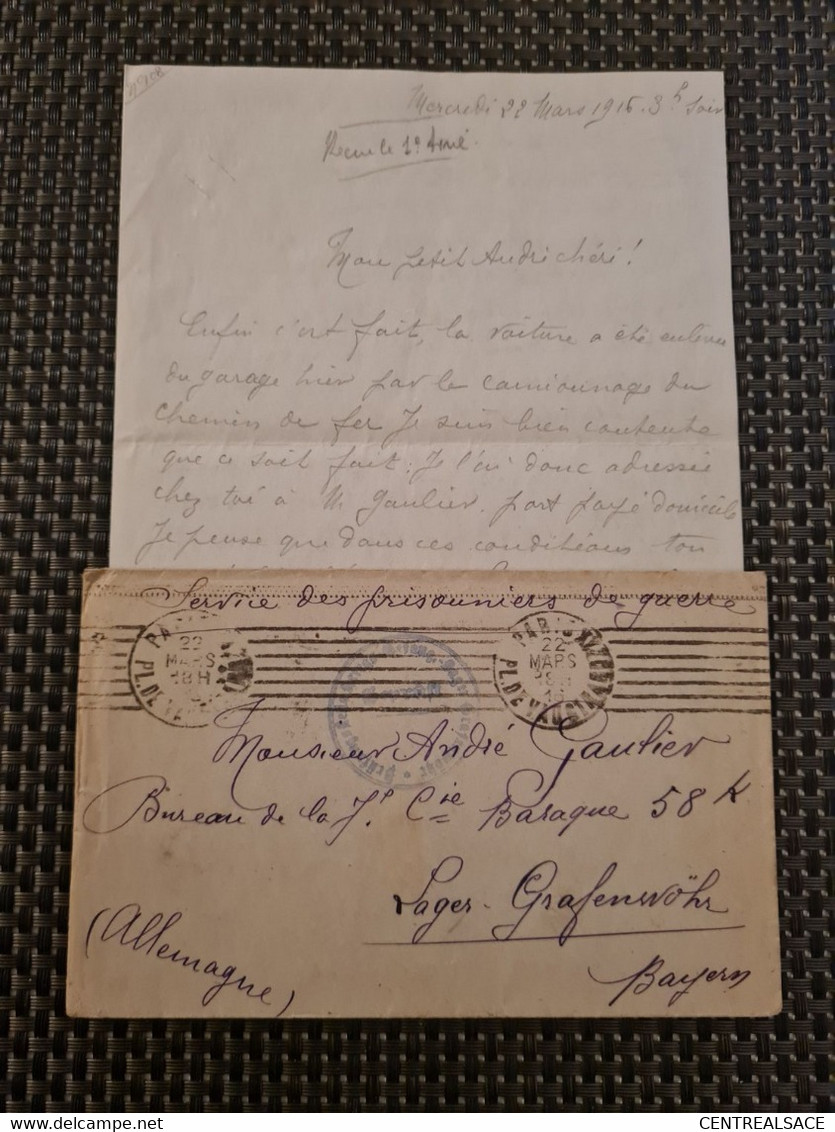 N° 108
Mercredi 22 Mars 1916. 3h Soir
Recu le 1er Avril.
Mon petit André chéri!
Enfin c'est fait, la voiture a été enlevée
du garage hier par le camionnage du
chemin de fer Je suis bien contente
que ce soit fait. Je l'ai donc adressée
chez toi à M. Gaulier. port payé domicile
Je pense que dans ces conditions ton
Service des prisonniers de guerre
PARIS
22
MARS
18H
PL. DE
PARIS
22
MARS
18H
PL. DE VAUGIRARD
Monsieur André Gaulier
Bureau de la 7e Cie Baraque 58 K
Lager-Grafenwöhr
(Allemagne)
Bayern
www.delcampe.net
CENTREALSACE